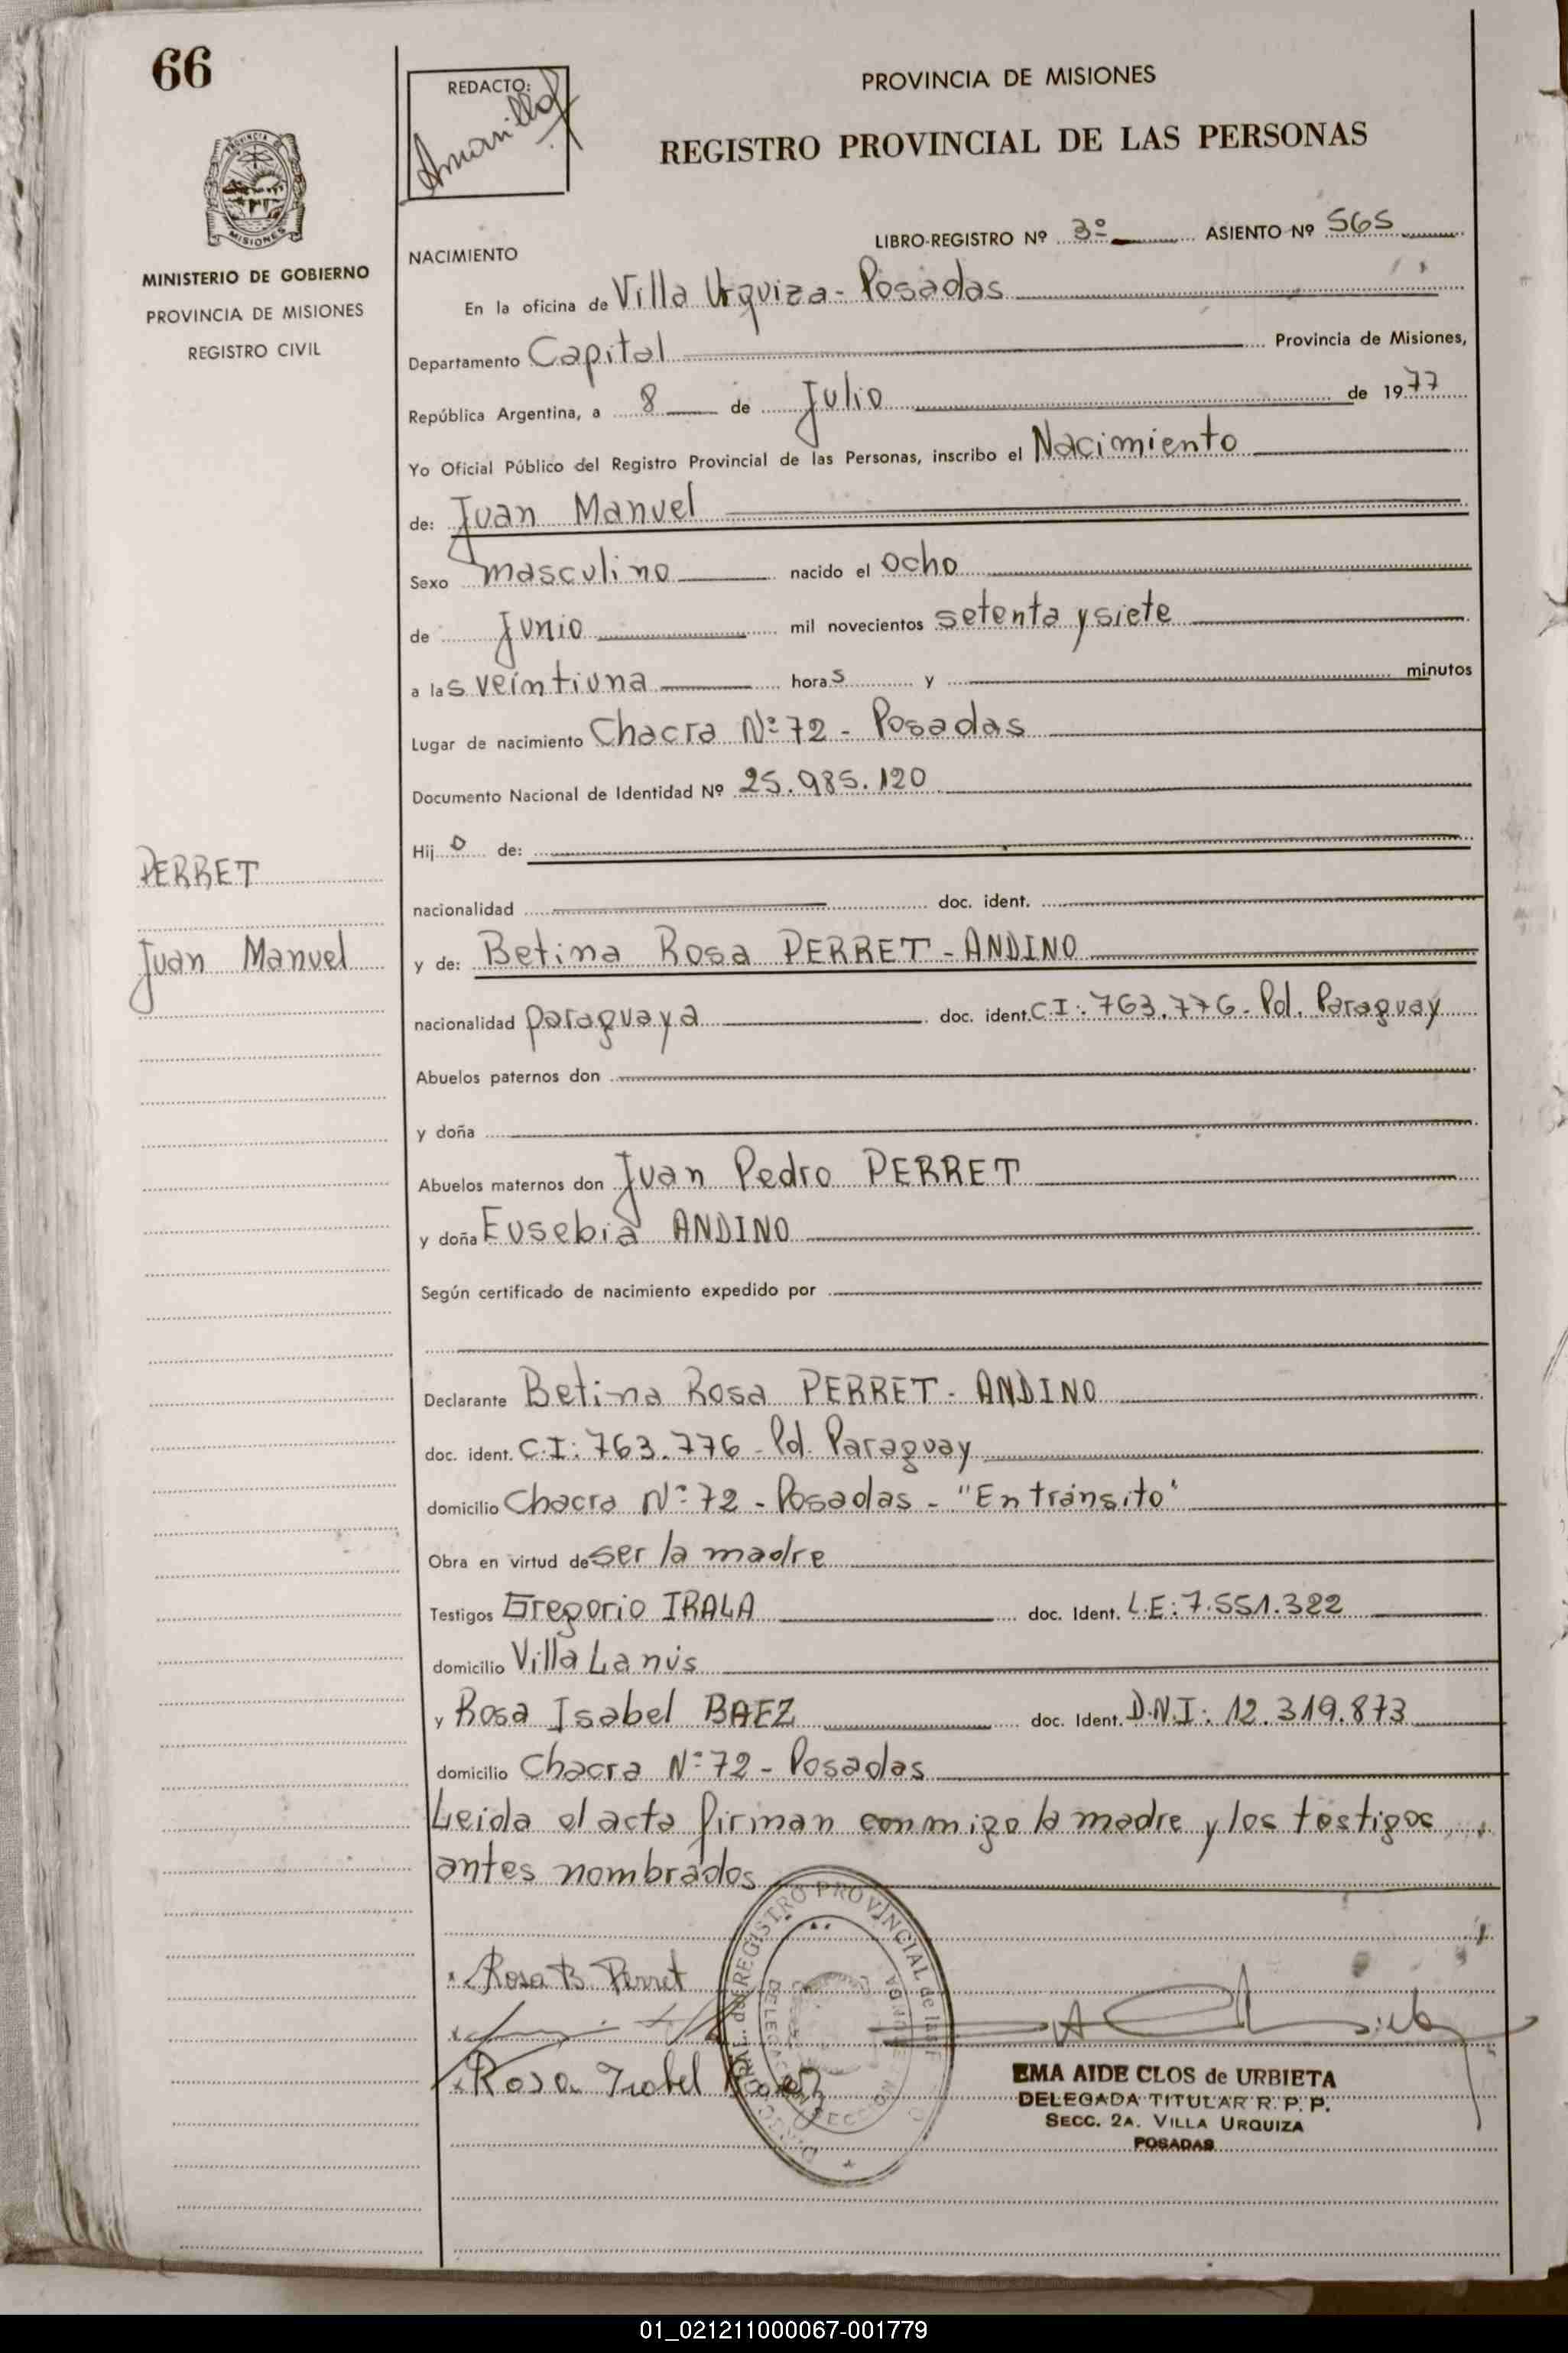 66
REDACTO:
Amarilla
PROVINCIA DE MISIONES
REGISTRO PROVINCIAL DE LAS PERSONAS
PROVINCIA
MISIONES
MINISTERIO DE GOBIERNO
PROVINCIA DE MISIONES
REGISTRO CIVIL
LIBRO-REGISTRO Nº 3º ASIENTO Nº 565
NACIMIENTO
En la oficina de Villa Urquiza - Posadas
Departamento Capital Provincia de Misiones,
República Argentina, a 8 de Julio de 1977
Yo Oficial Público del Registro Provincial de las Personas, inscribo el Nacimiento
de: Juan Manuel
Sexo masculino nacido el ocho
de junio mil novecientos setenta y siete
a las veintiuna horas y minutos
Lugar de nacimiento Chacra Nº 72 - Posadas
Documento Nacional de Identidad Nº 25.985.120
Hijo de:
nacionalidad doc. ident.
PERRET
Juan Manuel
y de: Betina Rosa PERRET - ANDINO
nacionalidad paraguaya doc. ident. C.I: 763.776 - Pol. Paraguay
Abuelos paternos don
y doña
Abuelos maternos don Juan Pedro PERRET
y doña Eusebia ANDINO
Según certificado de nacimiento expedido por
Declarante Betina Rosa PERRET - ANDINO
doc. ident. C.I: 763.776 - Pol. Paraguay
domicilio Chacra Nº 72 - Posadas - "En tránsito"
Obra en virtud de ser la madre
Testigos Gregorio IRALA doc. Ident. L.E: 7.551.322
domicilio Villa Lanús
y Rosa Isabel BAEZ doc. Ident. D.N.I: 12.319.873
domicilio Chacra Nº 72 - Posadas
Leida el acta firman conmigo la madre y los testigos
antes nombrados
REGISTRO PROVINCIAL de las P
Rosa B Perret
Rosa Isabel Baez
EMA AIDE CLOS de URBIETA
DELEGADA TITULAR R. P. P.
SECC. 2A. VILLA URQUIZA
POSADAS
01_021211000067-001779